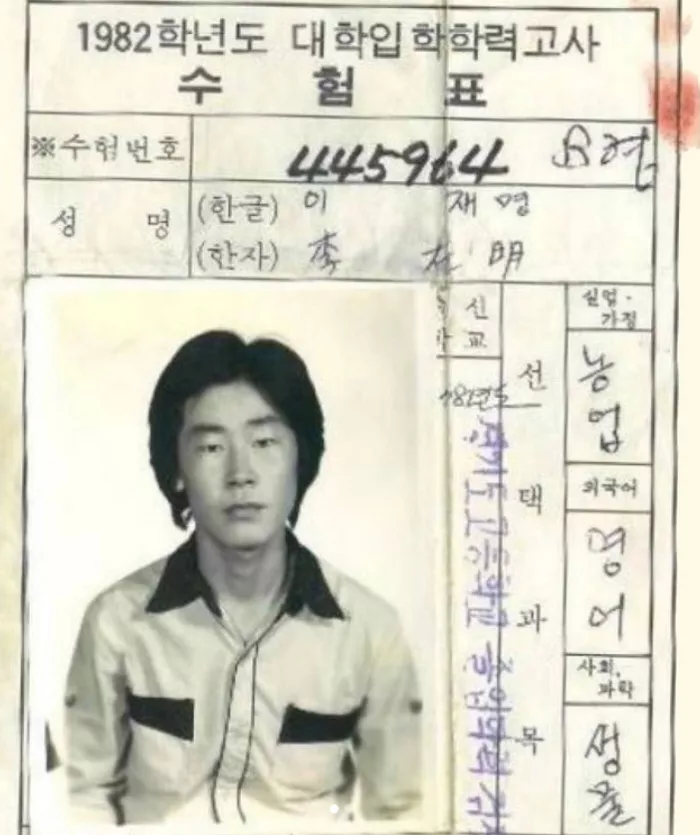 1982학년도 대학입학학력고사
수 험 표
※수험번호 445964
성 명
(한글) 이 재 명
(한자) 李 在 明
신
교
선 택 과 목
실업·
가정
농업
외국어
영어
사회,
과학
생물
경기도 고등학교 졸업학력 검